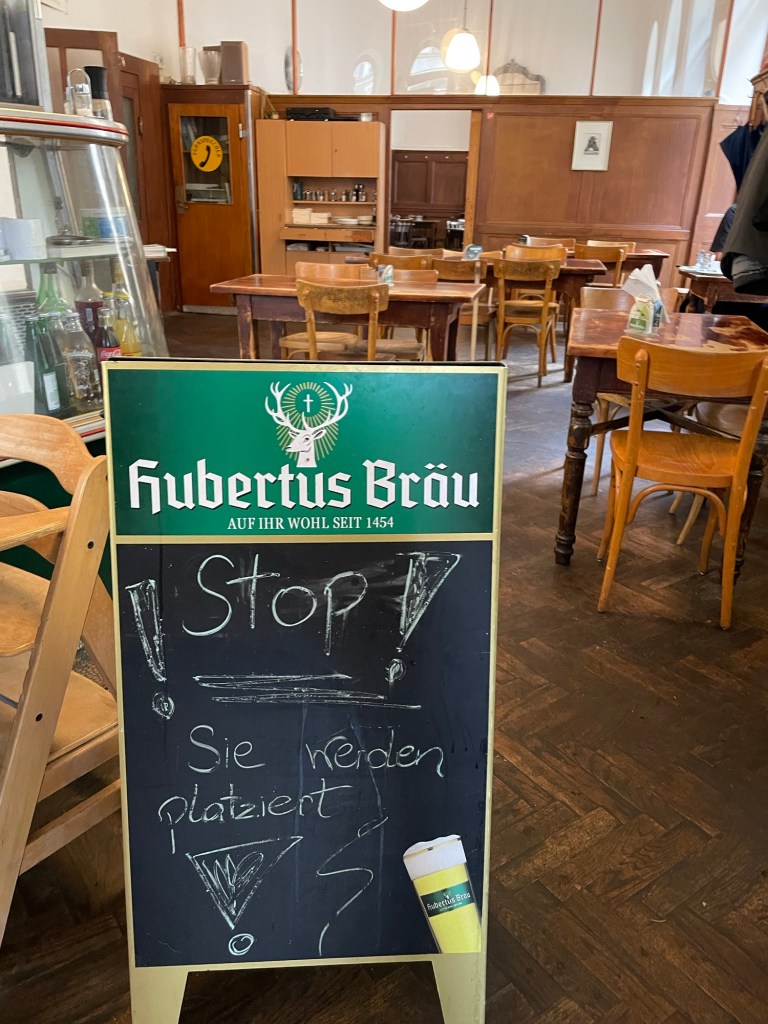 FERNSPRECHER
Hubertus Bräu
AUF IHR WOHL SEIT 1454
! Stop !
Sie werden
platziert
!
Hubertus Bräu